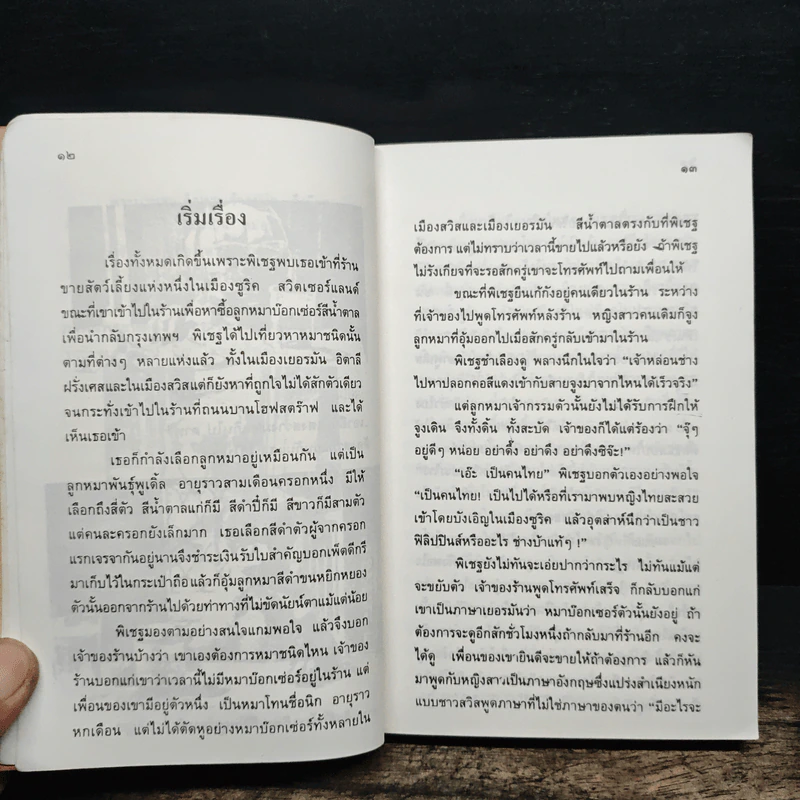 ๑๒
เริ่มเรื่อง
เรื่องทั้งหมดเกิดขึ้นเพราะพิเชฐพบเธอเข้าที่ร้าน
ขายสัตว์เลี้ยงแห่งหนึ่งในเมืองซูริค สวิตเซอร์แลนด์
ขณะที่เขาเข้าไปในร้านเพื่อหาซื้อลูกหมาบ๊อกเซ่อร์สีน้ำตาล
เพื่อนำกลับกรุงเทพฯ พิเชฐได้ไปเที่ยวหาหมาชนิดนั้น
ตามที่ต่างๆ หลายแห่งแล้ว ทั้งในเมืองเยอรมัน อิตาลี
ฝรั่งเศสและในเมืองสวิสแต่ก็ยังหาที่ถูกใจไม่ได้สักตัวเดียว
จนกระทั่งเข้าไปในร้านที่ถนนบานโฮฟสตร๊าฟ และได้
เห็นเธอเข้า
เธอก็กำลังเลือกลูกหมาอยู่เหมือนกัน แต่เป็น
ลูกหมาพันธุ์พูเดิ้ล อายุราวสามเดือนครอกหนึ่ง มีให้
เลือกถึงสี่ตัว สีน้ำตาลแก่ก็มี สีดำปี๋ก็มี สีขาวก็มีสามตัว
แต่คนละครอกยังเล็กมาก เธอเลือกสีดำตัวผู้จากครอก
แรกเจรจากันอยู่นานจึงชำระเงินรับใบสำคัญบอกเพ็ดดีกรี
มาเก็บไว้ในกระเป๋าถือแล้วก็อุ้มลูกหมาสีดำขนหยิกหยอง
ตัวนั้นออกจากร้านไปด้วยท่าทางที่ไม่ขัดนัยน์ตาแม้แต่น้อย
พิเชฐมองตามอย่างสนใจแกมพอใจ แล้วจึงบอก
เจ้าของร้านบ้างว่า เขาเองต้องการหมาชนิดไหน เจ้าของ
ร้านบอกแก่เขาว่าเวลานี้ไม่มีหมาบ๊อกเซ่อร์อยู่ในร้าน แต่
เพื่อนของเขามีอยู่ตัวหนึ่ง เป็นหมาโทนชื่อนิก อายุราว
หกเดือน แต่ไม่ได้ตัดหูอย่างหมาบ๊อกเซ่อร์ทั้งหลายใน
๑๓
เมืองสวิสและเมืองเยอรมัน สีน้ำตาลตรงกับที่พิเชฐ
ต้องการ แต่ไม่ทราบว่าเวลานี้ขายไปแล้วหรือยัง ถ้าพิเชฐ
ไม่รังเกียจที่จะรอสักครู่เขาจะโทรศัพท์ไปถามเพื่อนให้
ขณะที่พิเชฐยืนเก้กังอยู่คนเดียวในร้าน ระหว่าง
ที่เจ้าของไปพูดโทรศัพท์หลังร้าน หญิงสาวคนเดิมก็จูง
ลูกหมาที่อุ้มออกไปเมื่อสักครู่กลับเข้ามาในร้าน
พิเชฐชำเลืองดู พลางนึกในใจว่า “เจ้าหล่อนช่าง
ไปหาปลอกคอสีแดงเข้ากับสายจูงมาจากไหนได้เร็วจริง”
แต่ลูกหมาเจ้ากรรมตัวนั้นยังไม่ได้รับการฝึกให้
จูงเดิน จึงทั้งดิ้น ทั้งสะบัด เจ้าของก็ได้แต่ร้องว่า “จุ๊ๆ
อยู่ดีๆ หน่อย อย่าดึ้ง อย่าดึง อย่าดึงซิจ๊ะ!”
“เอ๊ะ เป็นคนไทย” พิเชฐบอกตัวเองอย่างพอใจ
“เป็นคนไทย! เป็นไปได้หรือที่เรามาพบหญิงไทยสะสวย
เข้าโดยบังเอิญในเมืองซูริค แล้วอุตส่าห์นึกว่าเป็นชาว
ฟิลิปปินส์หรืออะไร ช่างบ้าแท้ๆ !”
พิเชฐยังไม่ทันจะเอ่ยปากว่ากระไร ไม่ทันแม้แต่
จะขยับตัว เจ้าของร้านพูดโทรศัพท์เสร็จ ก็กลับบอกแก่
เขาเป็นภาษาเยอรมันว่า หมาบ๊อกเซ่อร์ตัวนั้นยังอยู่ ถ้า
ต้องการจะดูอีกสักชั่วโมงหนึ่งถ้ากลับมาที่ร้านอีก คงจะ
ได้ดู เพื่อนของเขายินดีจะขายให้ถ้าต้องการ แล้วก็หัน
มาพูดกับหญิงสาวเป็นภาษาอังกฤษซึ่งแปร่งสำเนียงหนัก
แบบชาวสวิสพูดภาษาที่ไม่ใช่ภาษาของตนว่า “มีอะไรจะ